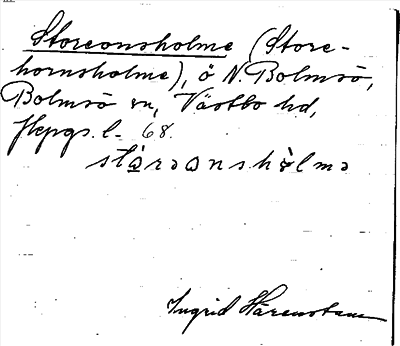 Storeonsholme (Store-
hornsholme), ö N. Bolmsö,
Bolmsö sn, Västbo hd,
Jkpgs. l. 68.
stòrəonshòlmə
Ingrid Härenstam